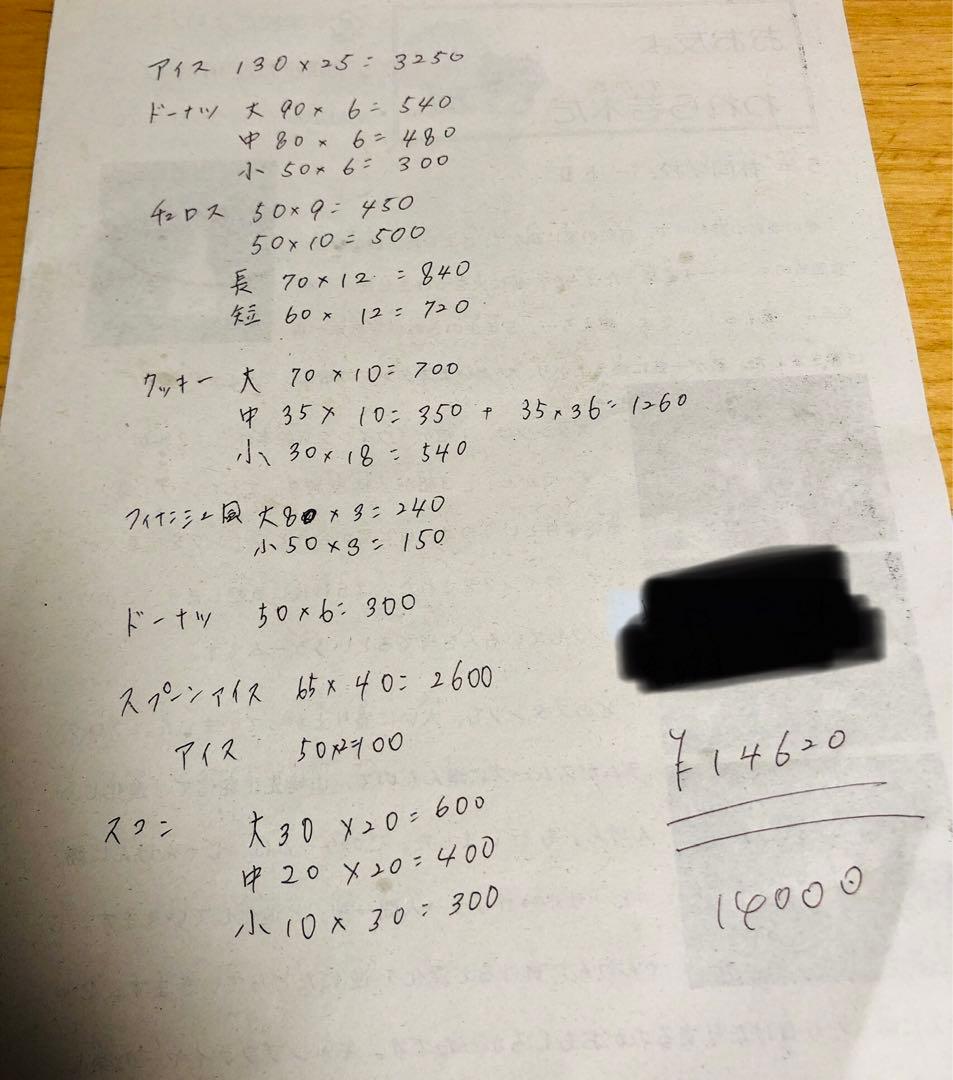 アイス 130×25=3250
ドーナツ 大 90×6=540
中 80×6=480
小 50×6=300
チュロス 50×9=450
50×10=500
長 70×12=840
短 60×12=720
クッキー 大 70×10=700
中 35×10=350 + 35×36=1260
小 30×18=540
フィナンシェ風 大80×3=240
小50×3=150
ドーナツ 50×6=300
スプーンアイス 65×40=2600
アイス 50×2=100
¥14620
スコーン 大30×20=600
中20×20=400
小10×30=300
14000